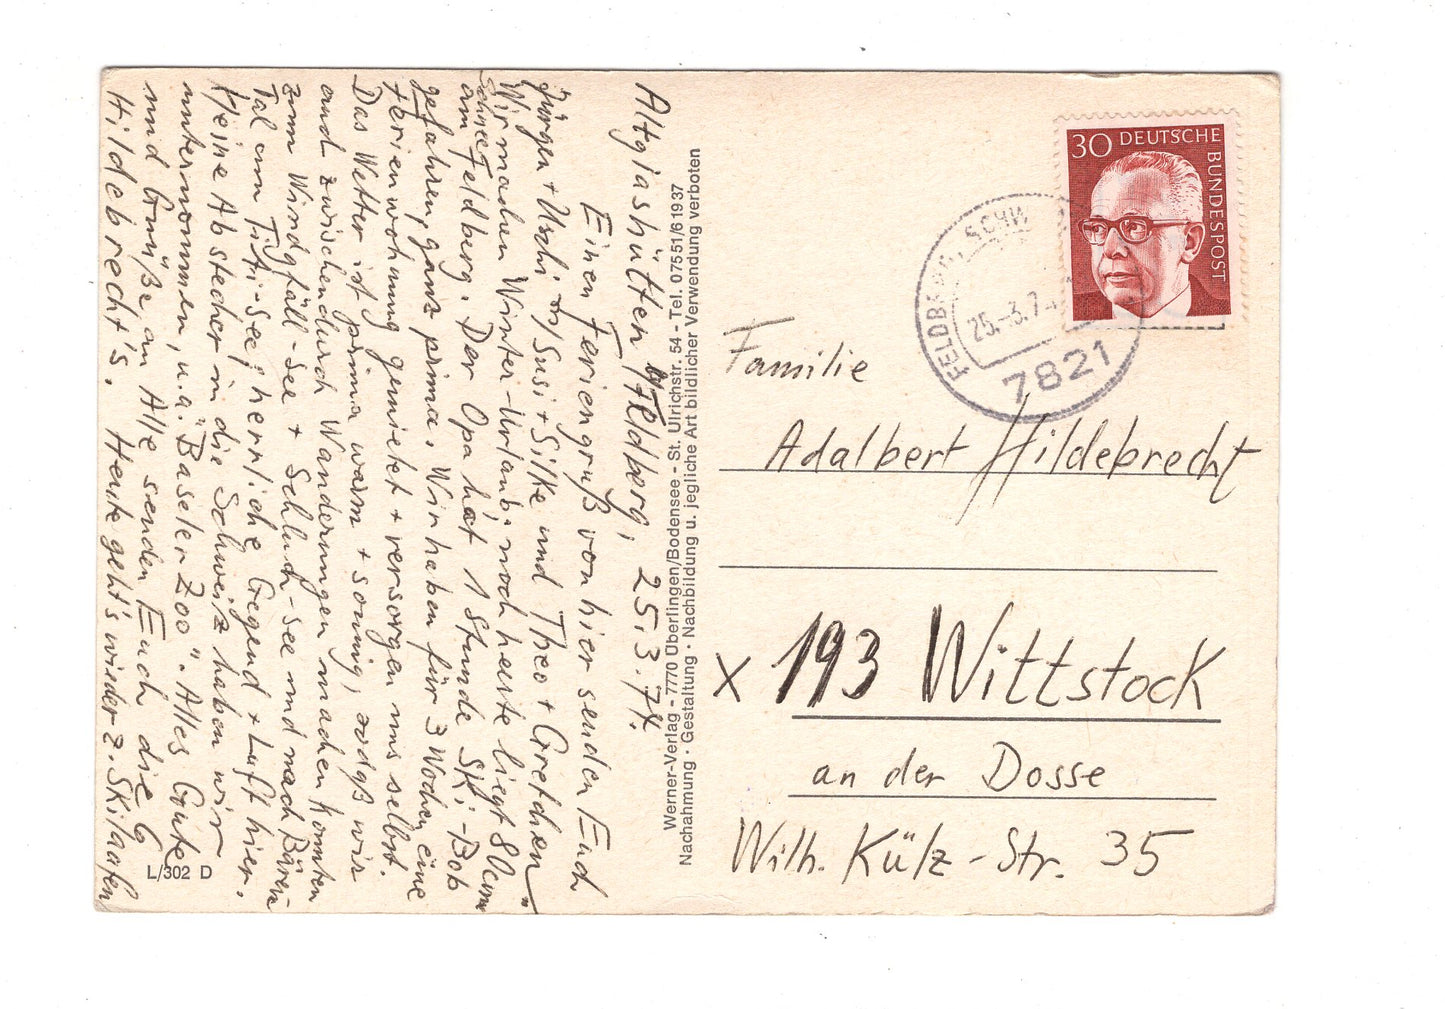 Altglashütten/Feldberg, 25.3.74.
Einen Feriengruß von hier senden Euch
Jürgen + Uschi m/Susi + Silke und Theo + Gretchen"
Wir machen Winter-Urlaub; noch heute liegt 80cm
Schnee
am Feldberg. Der Opa hat 1 Stunde Ski-Bob
gefahren, ganz prima. Wir haben für 3 Wochen eine
Ferienwohnung gemietet + versorgen uns selbst.
Das Wetter ist prima warm + sonnig, sodaß wir
auch zwischendurch Wanderungen machen konnten
zum Windgfäll-See + Schluch-See und nach Bären-
Tal am Titi-See; herrliche Gegend + Luft hier.
Kleine Abstecher in die Schweiz haben wir
unternommen, u.a. "Baseler Zoo". Alles Gute
und Grüße an Alle senden Euch die 6
Hildebrecht's. Heute geht's wieder z. Skilaufen
L/302 D
Werner-Verlag - 7770 Überlingen/Bodensee - St. Ulrichstr. 54 - Tel. 07551/61937
Nachahmung · Gestaltung · Nachbildung u. jegliche Art bildlicher Verwendung verboten
30 DEUTSCHE
BUNDESPOST
FELDBERG, SCHW
25.-3.74
7821
Familie
Adalbert Hildebrecht
x 193 Wittstock
an der Dosse
Wilh. Külz-Str. 35